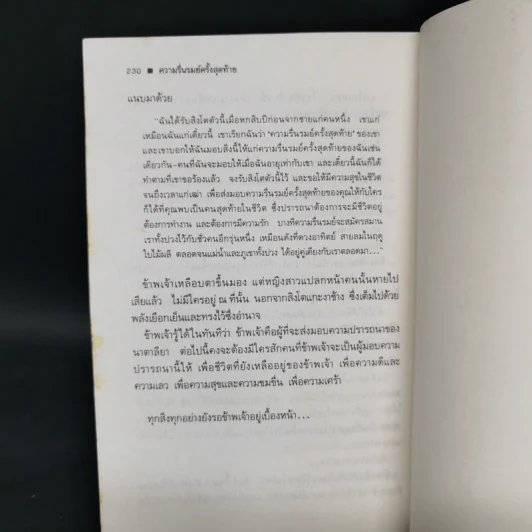 230 ■ ความรื่นรมย์ครั้งสุดท้าย
แนบมาด้วย
“ฉันได้รับสิงโตตัวนี้เมื่อหกสิบปีก่อนจากชายแก่คนหนึ่ง เขาแก่
เหมือนฉันแก่เดี๋ยวนี้ เขาเรียกฉันว่า ‘ความรื่นรมย์ครั้งสุดท้าย’ ของเขา
และเขาบอกให้ฉันมอบสิงโตนี้ให้แก่ความรื่นรมย์ครั้งสุดท้ายของฉันเช่น
เดียวกัน-คนที่ฉันจะมอบให้เมื่อฉันอายุเท่ากับเขา และเดี๋ยวนี้ฉันก็ได้
ทำตามที่เขาขอร้องแล้ว จงรับสิงโตตัวนี้ไว้ และขอให้มีความสุขในชีวิต
จนถึงเวลาแก่เฒ่า เพื่อส่งมอบความรื่นรมย์ครั้งสุดท้ายของคุณให้กับใคร
ก็ได้ที่คุณพบเป็นคนสุดท้ายในชีวิต ซึ่งปรารถนาต้องการจะมีชีวิตอยู่
ต้องการทำงาน และต้องการมีความรัก บางทีความรื่นรมย์จะสมัครสมาน
เราทั้งปวงไว้กับชั่วคนอีกรุ่นหนึ่ง เหมือนดังที่ดวงอาทิตย์ สายลมในฤดู
ใบไม้ผลิ ตลอดจนแม่น้ำและภูเขาทั้งปวง ได้อยู่คู่เคียงกับเราตลอดมา...”
ข้าพเจ้าเหลือบตาขึ้นมอง แต่หญิงสาวแปลกหน้าคนนั้นหายไป
เสียแล้ว ไม่มีใครอยู่ ณ ที่นั้น นอกจากสิงโตแกะงาช้าง ซึ่งเต็มไปด้วย
พลังเยือกเย็นและทรงไว้ซึ่งอำนาจ
ข้าพเจ้ารู้ได้ในทันทีว่า ข้าพเจ้าคือผู้ที่จะส่งมอบความปรารถนาของ
นาตาลียา ต่อไปนี้คงจะต้องมีใครสักคนที่ข้าพเจ้าจะเป็นผู้มอบความ
ปรารถนานี้ให้ เพื่อชีวิตที่ยังเหลืออยู่ของข้าพเจ้า เพื่อความดีและ
ความเลว เพื่อความสุขและความขมขื่น เพื่อความเศร้า
ทุกสิ่งทุกอย่างยังรอข้าพเจ้าอยู่เบื้องหน้า...